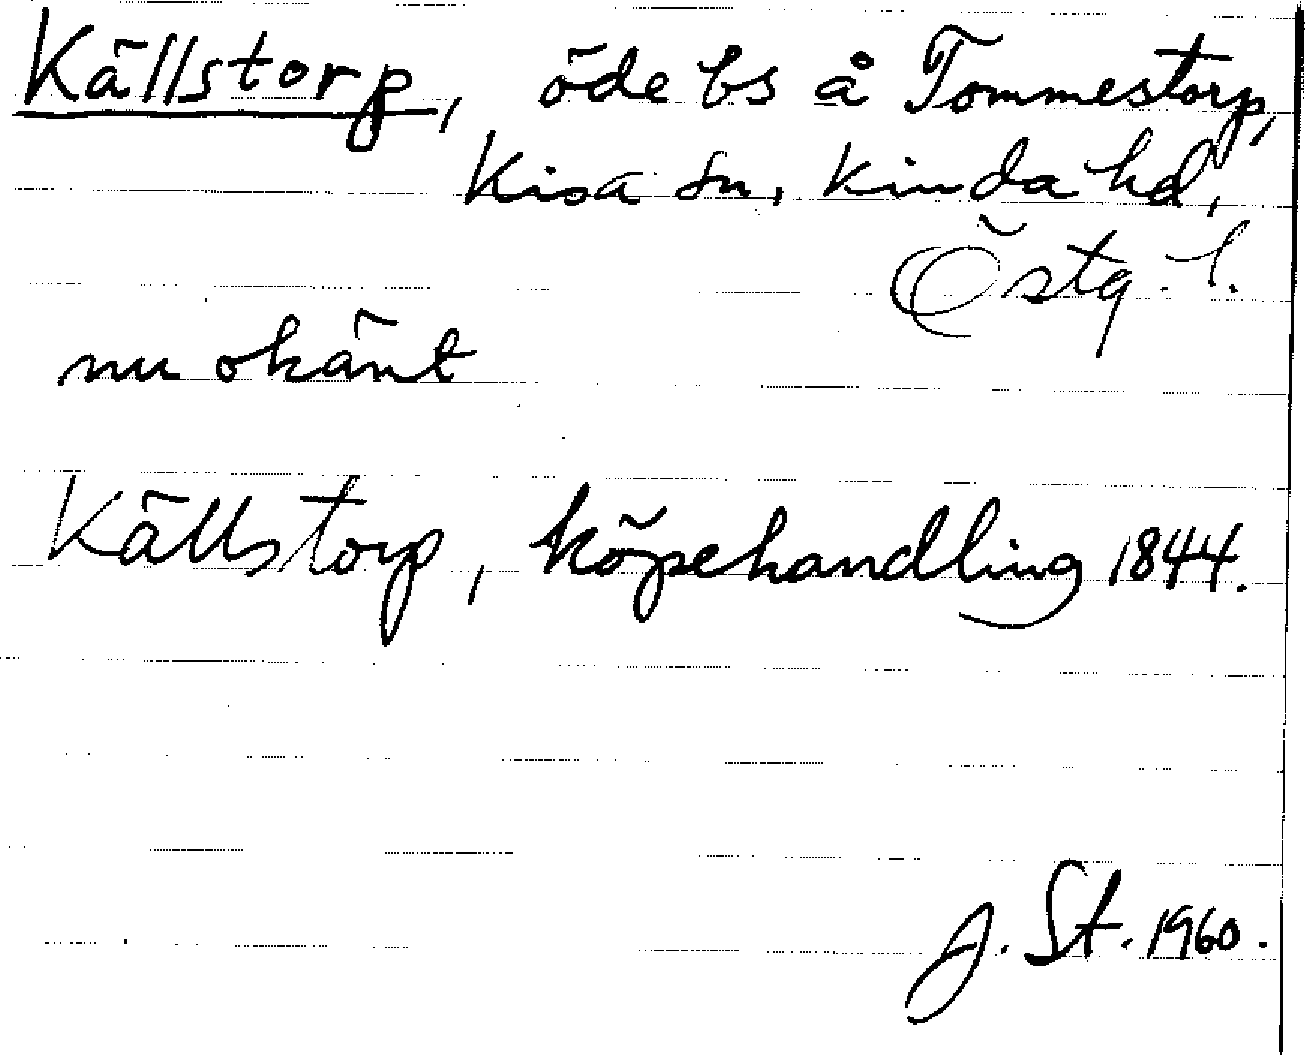 Källstorp, öde bs å Tommestorp,
Kisa sn, Kinda hd,
Östg. l.
nu okänt
Källstorp, köpehandling 1844.
J. St. 1960.